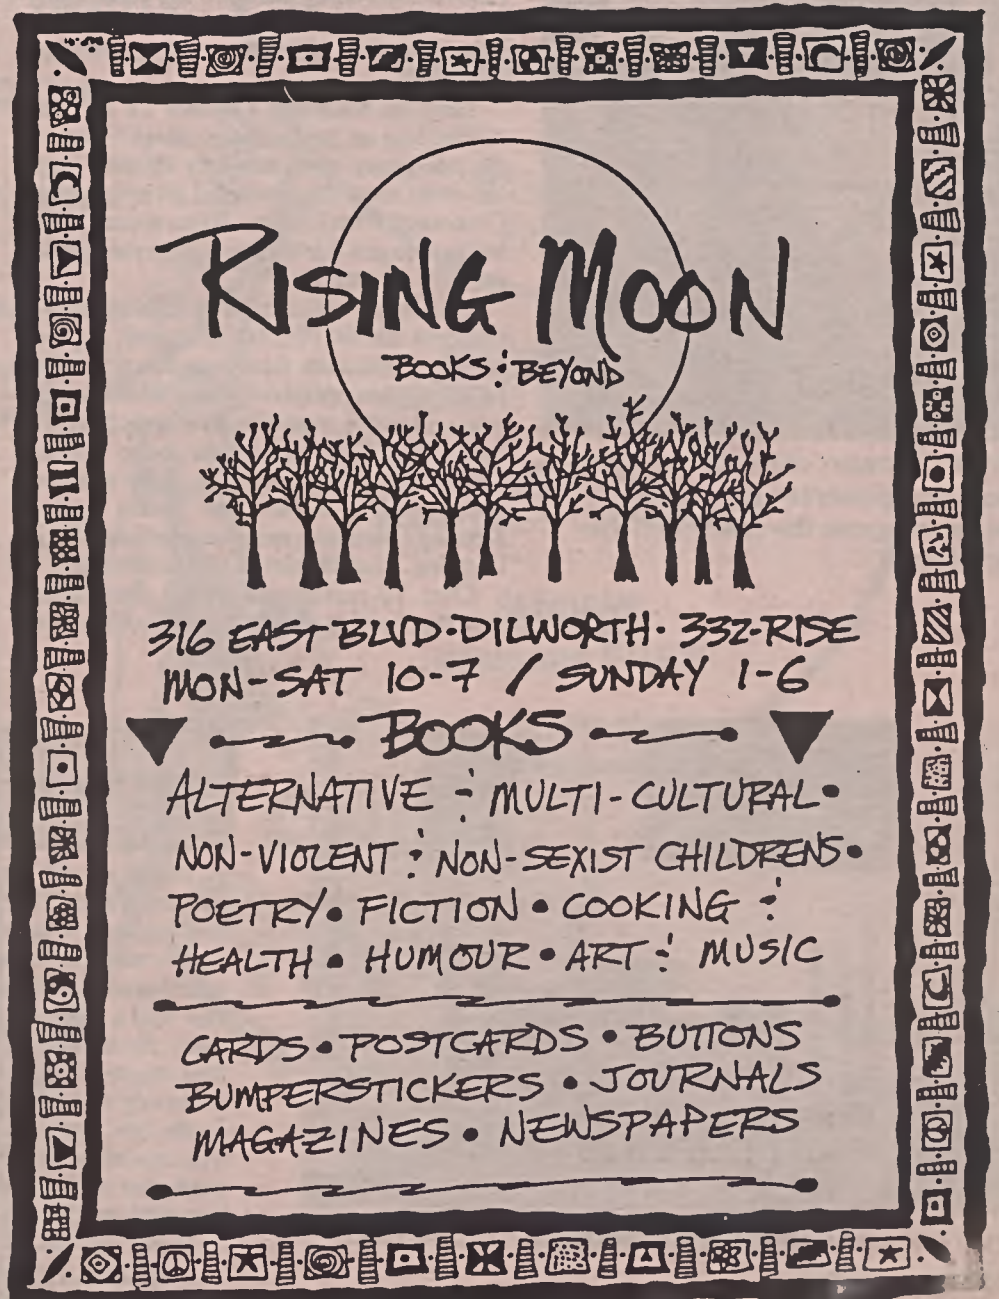 RISING MOON
BOOKS & BEYOND
316 EAST BLVD • DILWORTH • 332-RISE
MON-SAT 10-7 / SUNDAY 1-6
BOOKS
ALTERNATIVE & MULTI-CULTURAL •
NON-VIOLENT & NON-SEXIST CHILDRENS •
POETRY • FICTION • COOKING &
HEALTH • HUMOUR • ART & MUSIC
CARDS • POSTCARDS • BUTTONS
BUMPERSTICKERS • JOURNALS
MAGAZINES • NEWSPAPERS